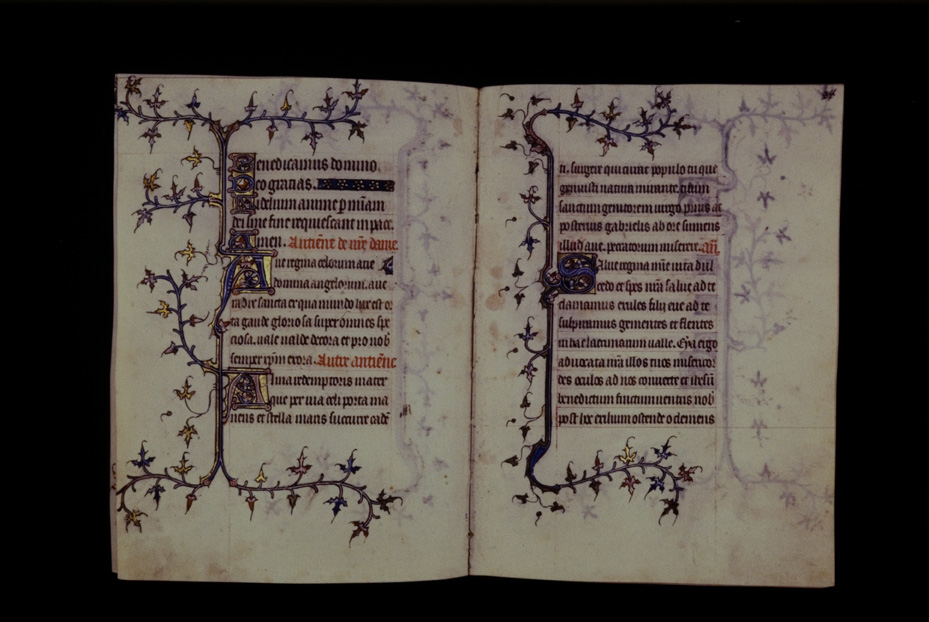 Benedicamus domino.
Deo gracias.
Fidelium anime p mĩam
dei sine fine requiescant in pace.
Amen. Antienne de nr̃e dame.
Aue regina celorum aue
domina angelorum. aue
radix sancta ex qua mundo lux est or
ta gaude gloriosa super omnes spe
ciosa. uale ualde decora et pro nob
semper xp̃m exora. Autre antiẽne
Alma redemptoris mater
que per uia celi porta ma
nens et stella maris succurre cadẽ
ti. surgere qui curat populo tu que
genuisti natura mirante. tuum
sanctum genitorem uirgo. prius ac
posterius gabrielis ab ore sumens
illud aue. peccatorum miserere. añ.
Salue regina mĩe uita dul
cedo et spes nr̃a salue ad te
clamamus exules filii eue ad te
suspiramus gementes et flentes
in hac lacrimarum ualle. Eya ergo
aduocata nr̃a illos tuos misericor
des oculos ad nos conuerte et ihesũ
benedictum fructum uentris nob
post hoc exilium ostende o clemens